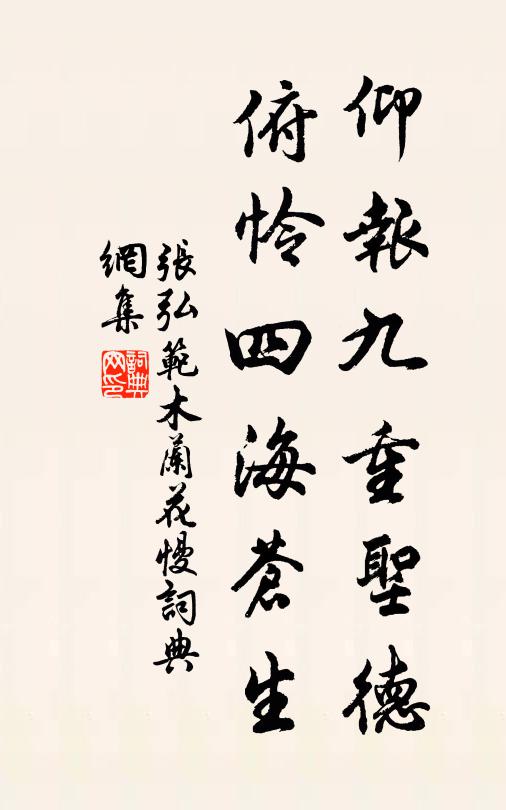 仰報九重聖德
俯怜四海蒼生
張弘範木蘭花慢詞典
網集
詞典網印